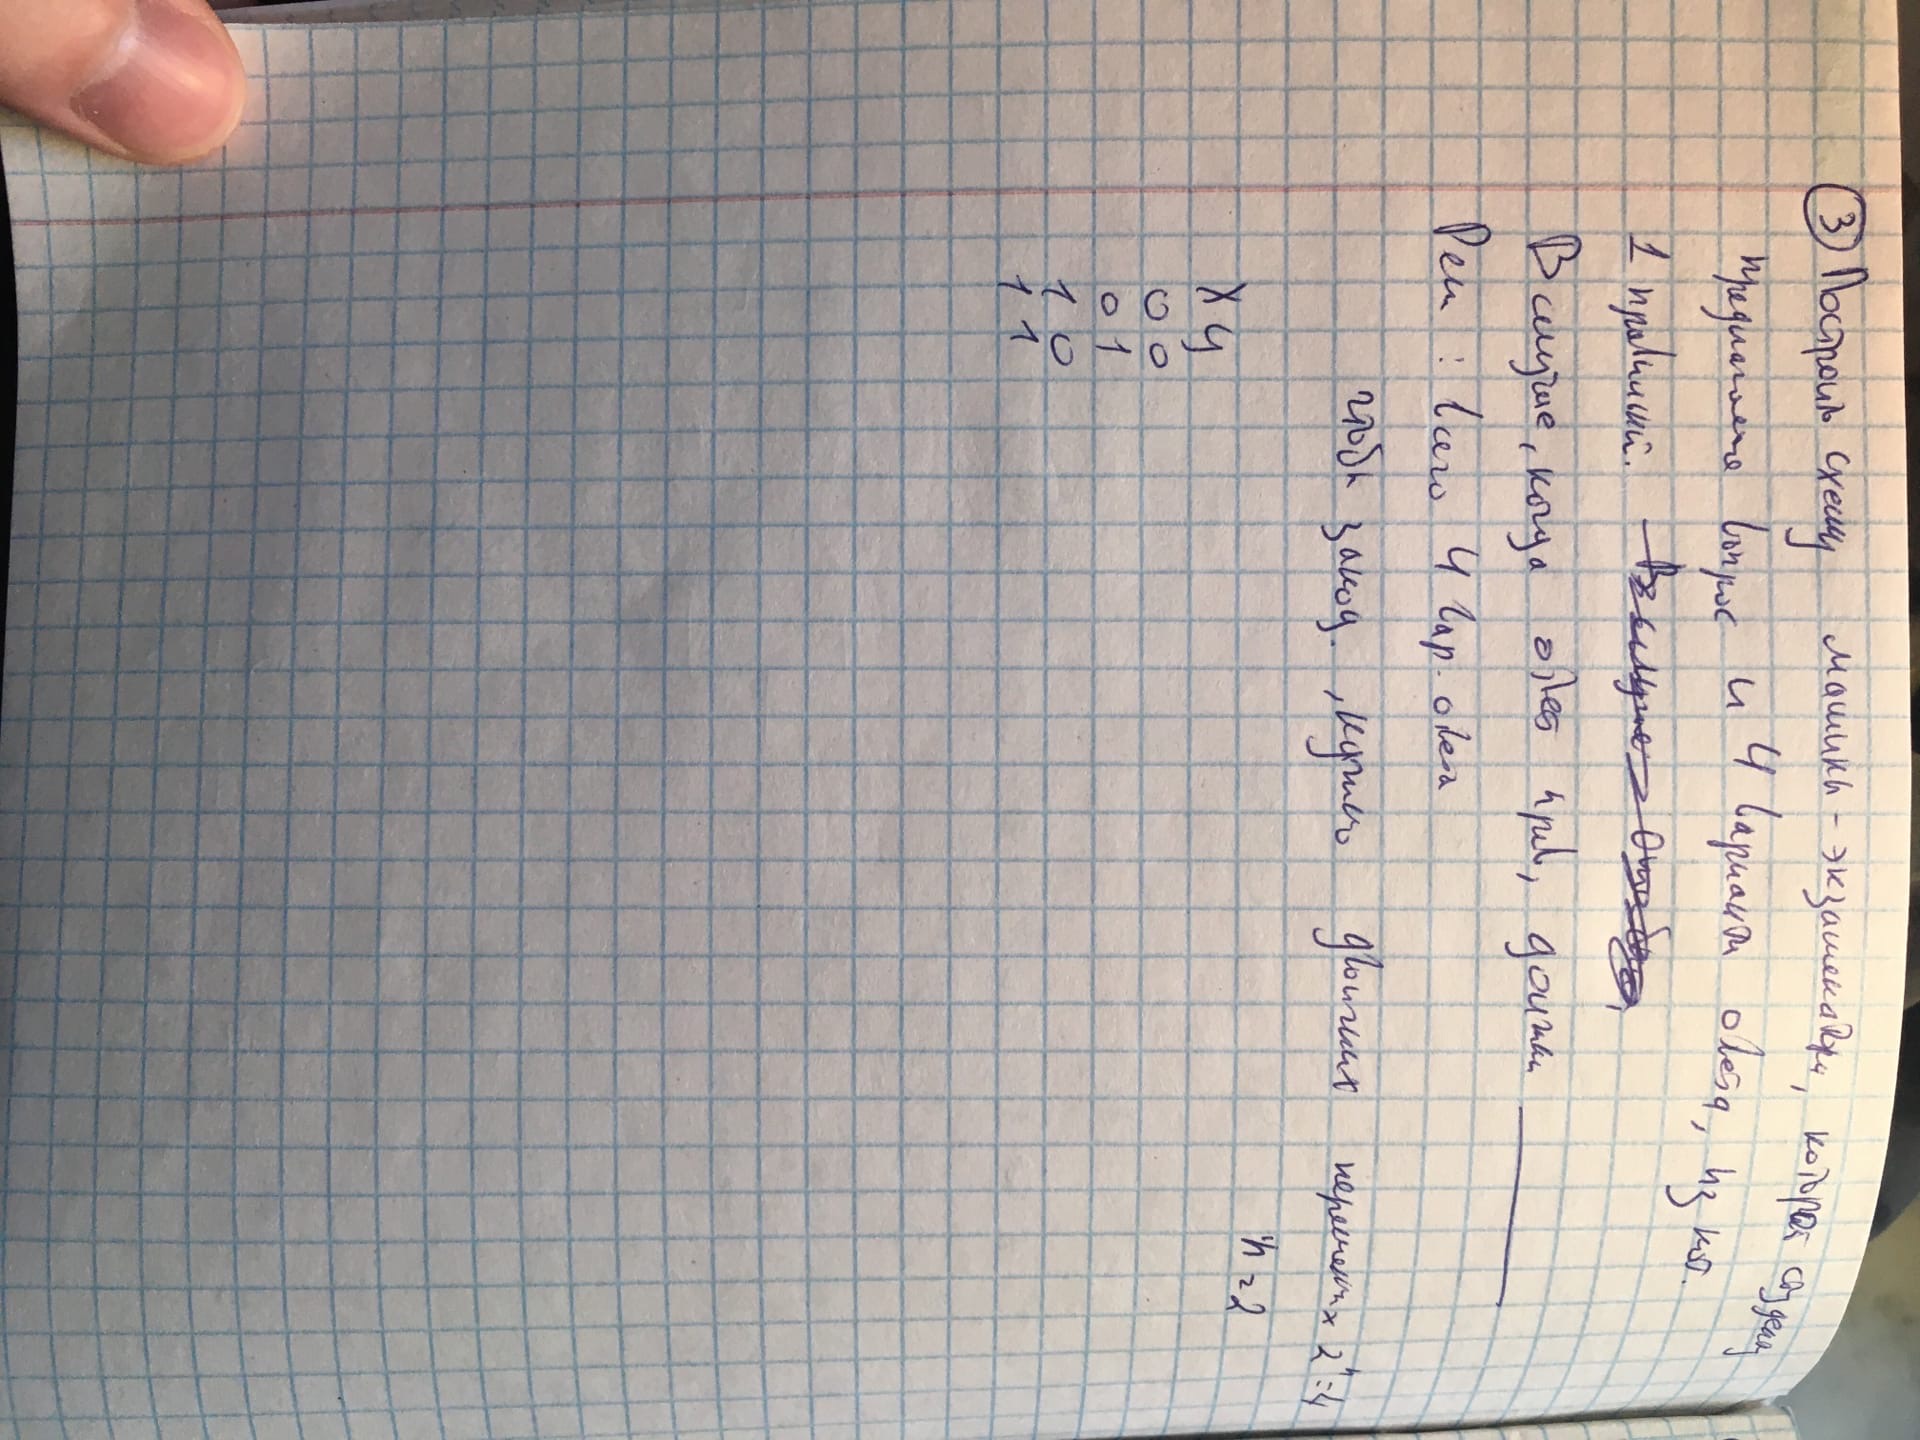 ③ Построить схему машины-экзаменатора, которой студенту
предлагается вопрос и 4 варианта ответа, из кот.
1 правильный.
В случае, когда ответ прав, должны
Реш: всего 4 вар. ответа
чтобы закод., нужно двоичных переменных 2ⁿ=4
n=2
x y
0 0
0 1
1 0
1 1